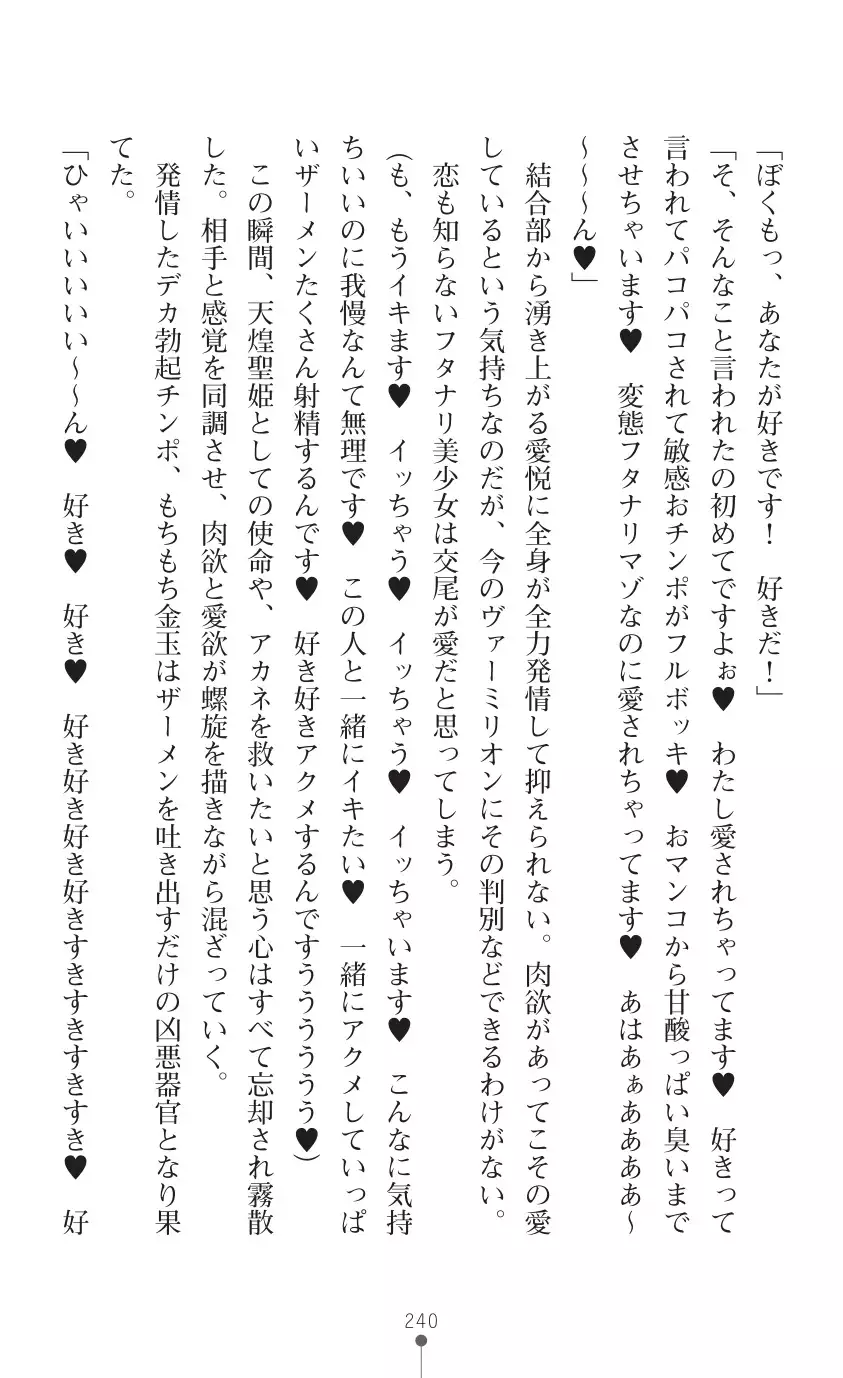 「ぼくもっ、あなたが好きです！　好きだ！」
「そ、そんなこと言われたの初めてですよぉ♥　わたし愛されちゃってます♥　好きって
言われてパコパコされて敏感おチンポがフルボッキ♥　おマンコから甘酸っぱい臭いまで
させちゃいます♥　変態フタナリマゾなのに愛されちゃってます♥　あはあぁああああ～
～～～ん♥」
　結合部から湧き上がる愛悦に全身が全力発情して抑えられない。肉欲があってこその愛
しているという気持ちなのだが、今のヴァーミリオンにその判別などできるわけがない。
　恋も知らないフタナリ美少女は交尾が愛だと思ってしまう。
（も、もうイキます♥　イッちゃう♥　イッちゃう♥　イッちゃいます♥　こんなに気持
ちいいのに我慢なんて無理です♥　この人と一緒にイキたい♥　一緒にアクメしていっぱ
いザーメンたくさん射精するんです♥　好き好きアクメするんですうううううう♥）
　この瞬間、天煌聖姫としての使命や、アカネを救いたいと思う心はすべて忘却され霧散
した。相手と感覚を同調させ、肉欲と愛欲が螺旋を描きながら混ざっていく。
　発情したデカ勃起チンポ、もちもち金玉はザーメンを吐き出すだけの凶悪器官となり果
てた。
「ひゃいいいいい～～ん♥　好き♥　好き♥　好き好き好き好きすきすきすきすき♥　好
240